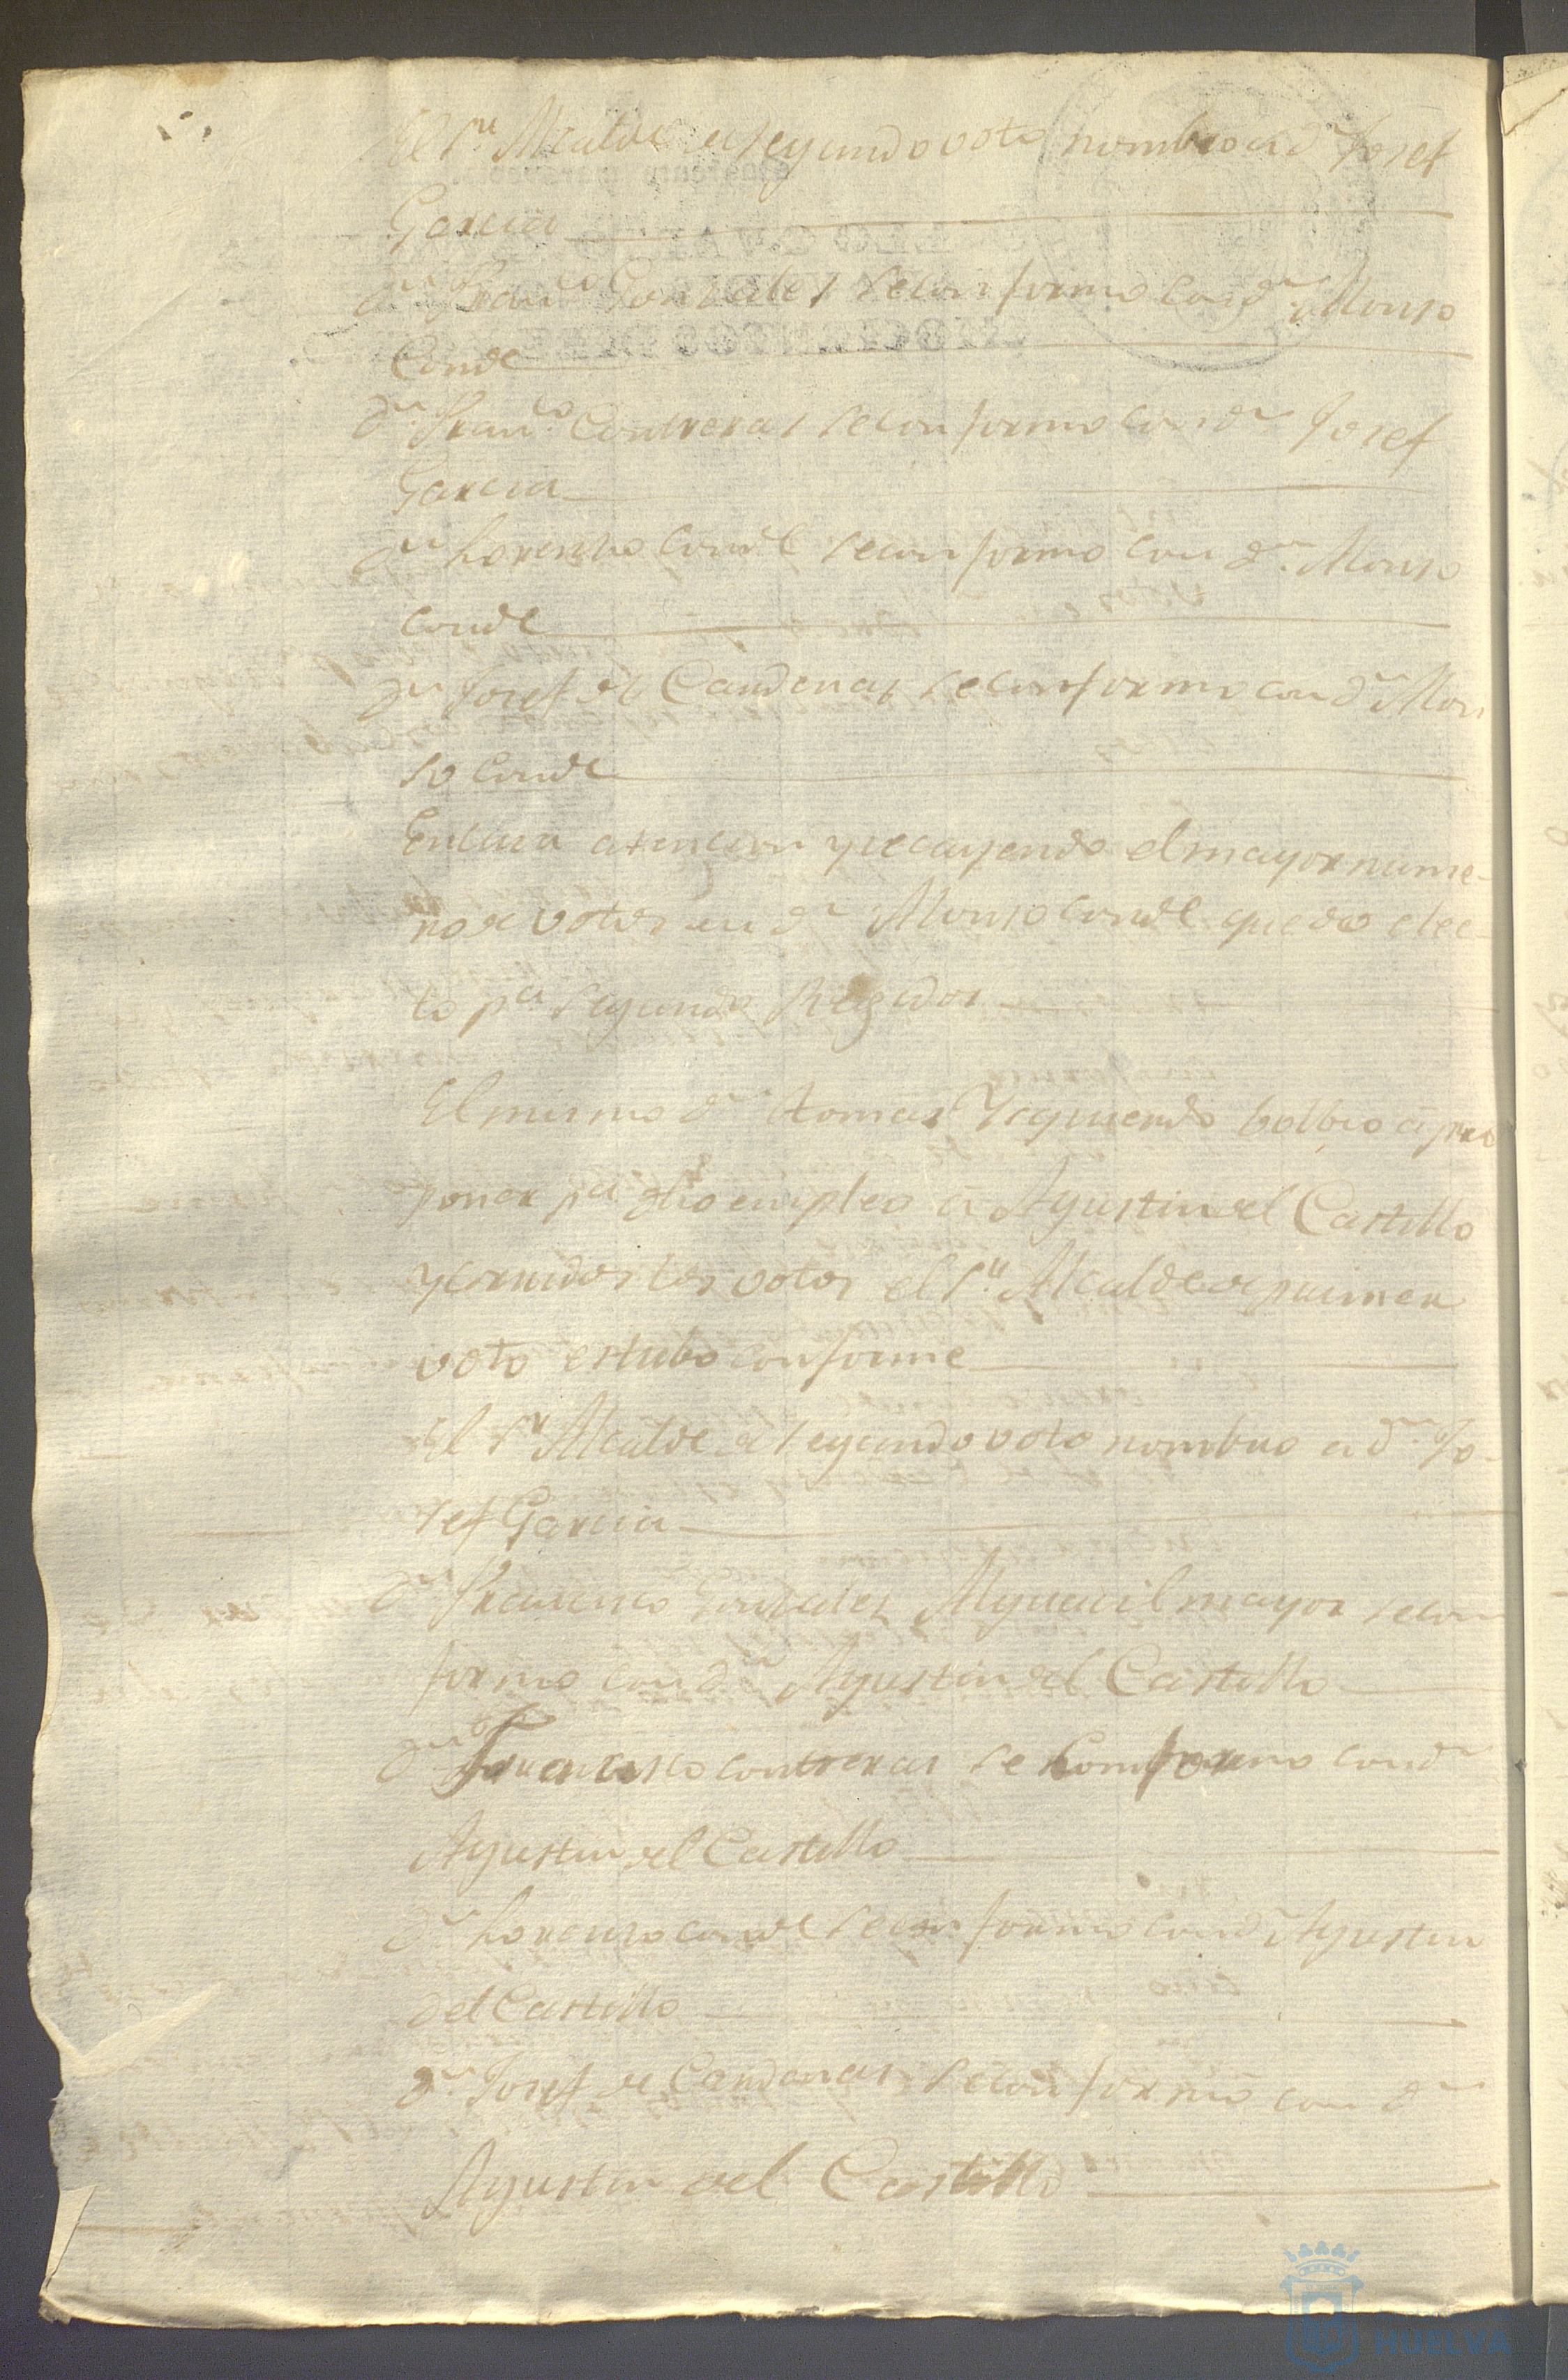 El Sr. Alcalde de segundo voto nombro a dn Josef
Garcia
dn Franco Gonzales se conformo con dn Alonso
Conde
dn Franco Contreras se conformo con dn Josef
Garcia
dn Lorenzo Conde se conformo con dn Alonso
Conde
dn Josef de Candenas se conformo con dn Alon
so Conde
En cuia atencion y recayendo el mayor nume-
ro de votos en dn Alonso Conde quedo elec-
to pa segundo Regidor
El mismo dn tomas Ysquierdo bolbio á pro
poner pa dho empleo á Agustin del Castillo
y corridos los votos el Sr. Alcalde de primer
voto estubo conforme
El Sr Alcalde de segundo voto nombro a dn Jo-
sef Garcia
dn Francisco Gonzales Alguacil mayor se con
formo con dn Agustin del Castillo
dn Francisco contreras se conformo con dn
Agustin del Castillo
dn Lorenzo conde se conformo con dn Agustin
del Castillo
dn Josef de Candenas se conformo con dn
Agustin del Castillo
HUELVA